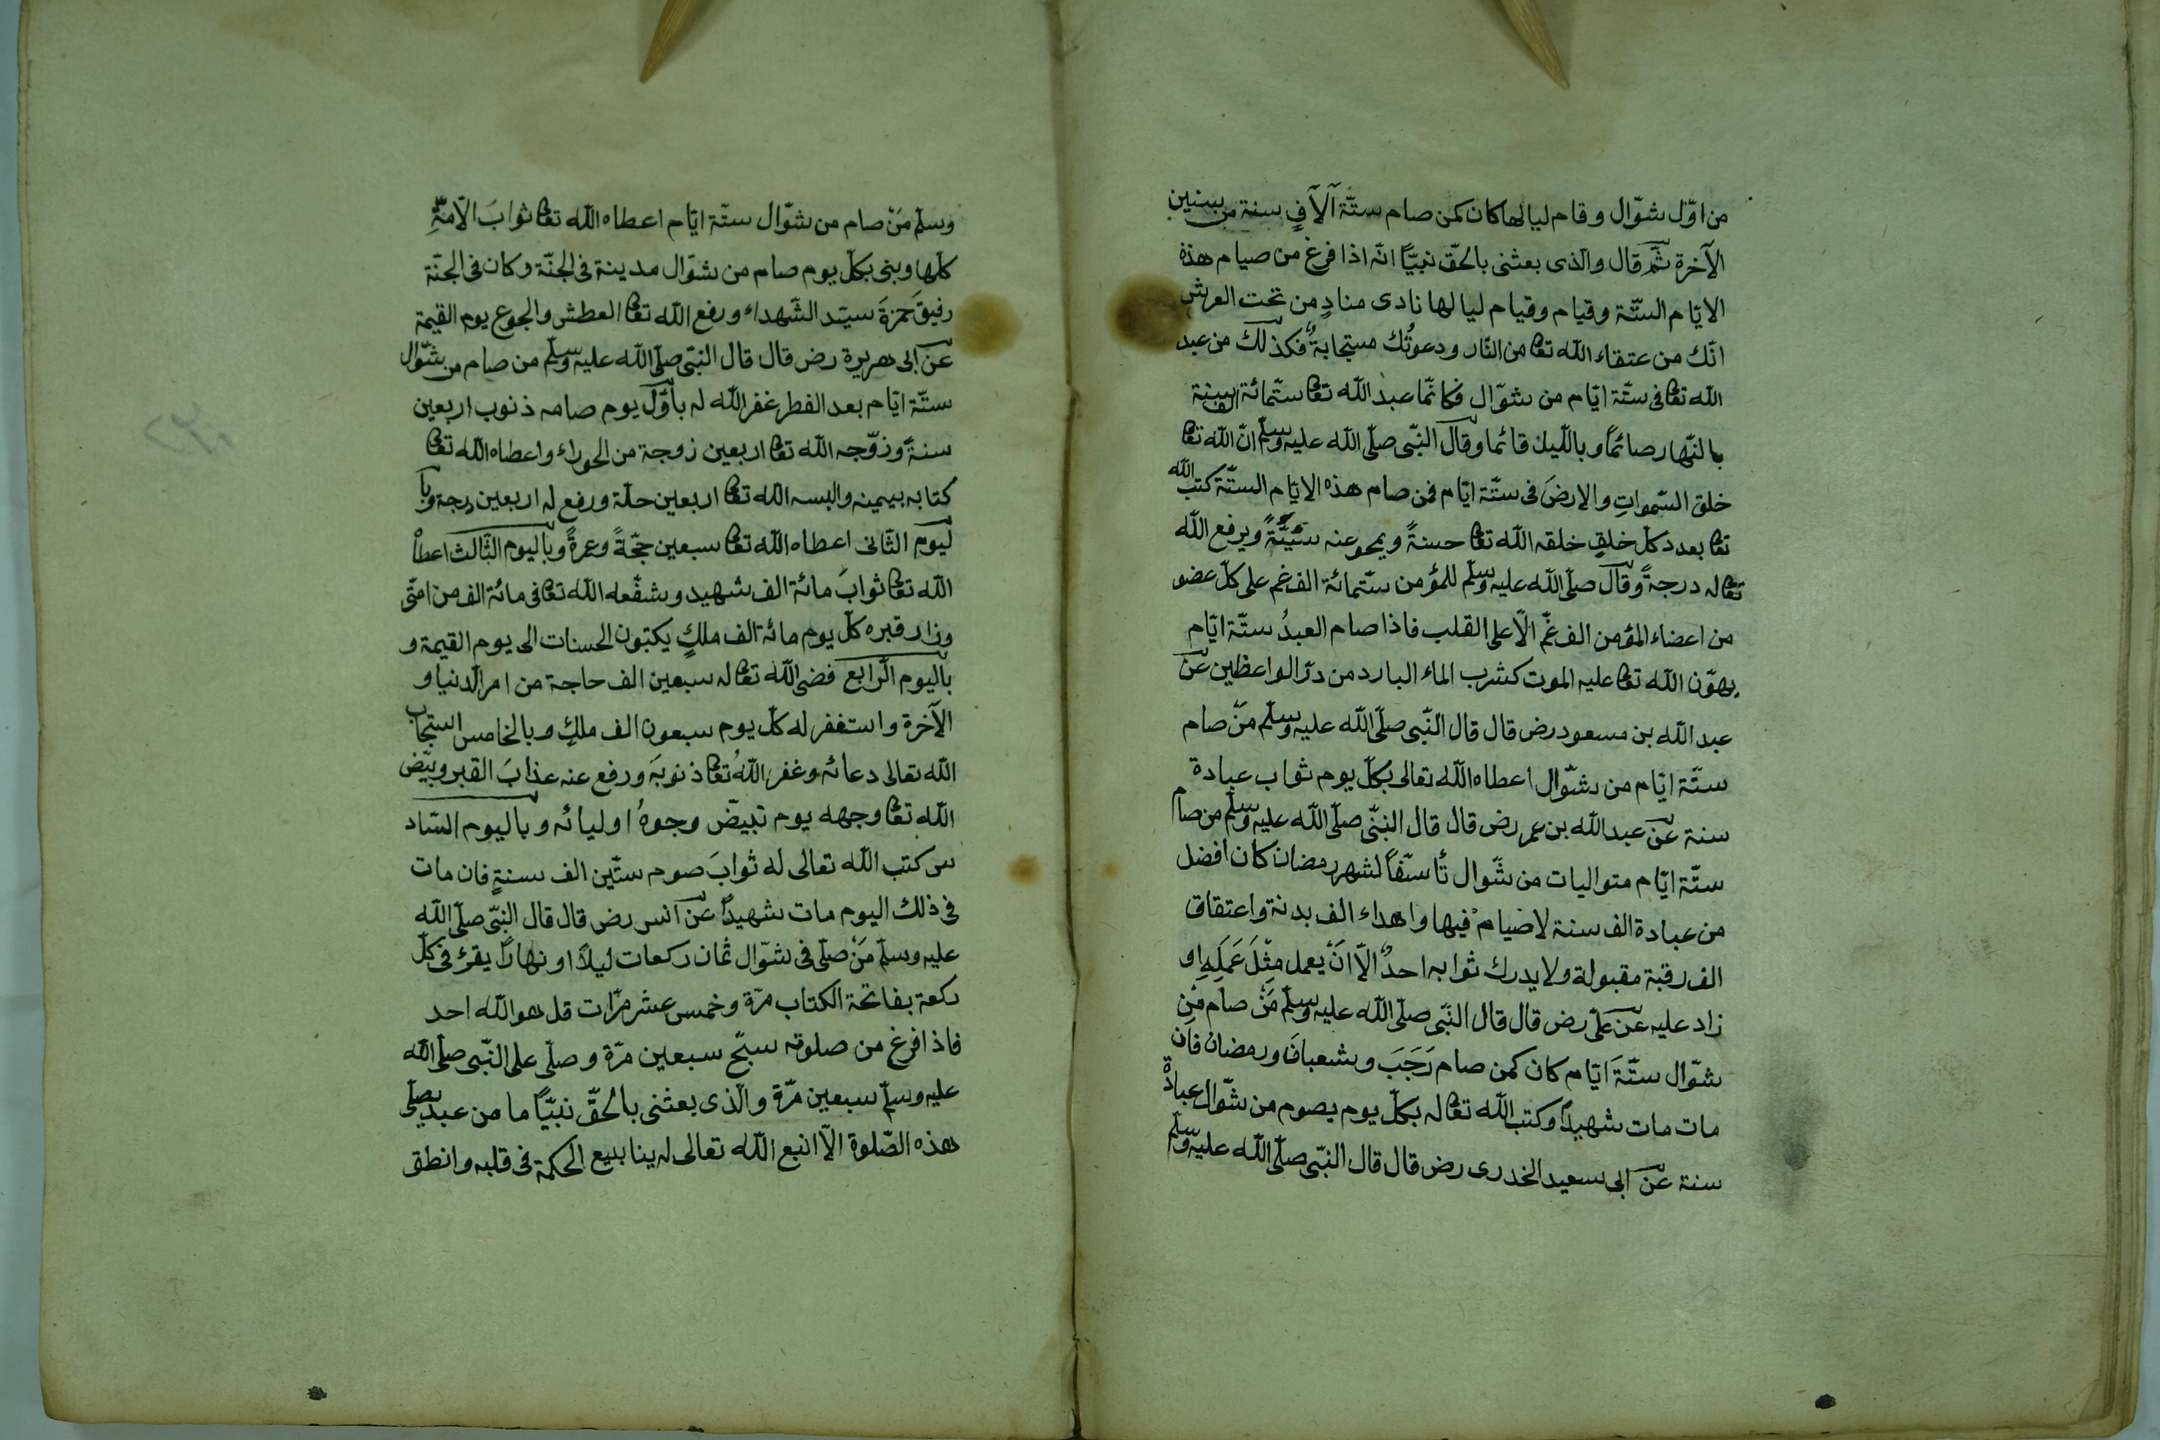 من اوّل شوّال وقام ليالها كان كمن صام ستّة آلآفٍ سنة من سنين
الآخرة ثمّ قال والّذى بعثنى بالحقّ نبيّاً انّه اذا فرغ من صيام هذه
الايّام الستّة وقيام وقيام ليالها نادى منادٍ من تحت العرش
انّك من عتقاء الله تعا من النّار ودعوتُك مستجابةٌ فكذلك من عبد
الله تعا فى ستّة ايّام من شوّال فكانّما عبد الله تعا ستّمائة الف سنة
بالنّهار صائماً وباللّيل قائما وقال النّبى صلّى الله عليه وسلّم انّ الله تعا
خلق السّموات والارضَ فى ستّة ايّام فمن صام هذه الايّام الستّة كتب الله
تعا بعدد كلّ خلقٍ خلقه الله تعا حسنةً ويمحو عنه سيّئةً ويرفع الله
تعا له درجةً وقال صلّى الله عليه وسلّم للمؤمن ستّمائة الف غم على كلّ عضو
من اعضاء المؤمن الف غمّ الّا على القلب فاذا صام العبدُ ستّة ايّام
يهوّن الله تعا عليه الموت كشرب الماء البارد من درّ الواعظين عن
عبد الله بن مسعود رض قال قال النّبى صلّى الله عليه وسلّم مَنْ صام
ستّة ايّام من شوّال اعطاه الله تعالى بكلّ يوم ثواب عبادة
سنة عن عبد الله بن عمر رض قال قال النبّى صلّى الله عليه وسلّم من صام
ستّة ايّام متواليات من شوّال تأسّفاً لشهر رمضان كان افضل
من عبادة الف سنة لاضيام فيها واهداء الف بدنة واعتقاق
الف رقبة مقبولة ولا يدرك ثوابه احدٌ الّا انْ يعمل مِثْلَ عَمَلِهِ او
زاد عليه عن علىّ رض قال قال النّبى صلّى الله عليه وسلّم مَنْ صام مِن
شوّال ستّةَ ايّام كان كمن صام رَجَبَ وشعبانَ ورمضان فان
مات مات شهيداً وكتب الله تعا له بكلّ يوم يصوم من شوّال عبادة
سنة عن ابى سعيد الخدرى رض قال قال النّبى صلّى الله عليه وسلّم
وسلّم مَنْ صام من شوّال ستّة ايّام اعطاه الله تعا ثوابَ الاّمةِ
كلّها وبنى بكلّ يوم صام من شوّال مدينة فى الجنّة وكان فى الجنّة
رفيقَ حمزةَ سيّد الشّهداء ورفع الله تعا العطش والجوع يوم القيمة
عن ابى هريرة رض قال قال النبّى صلّى الله عليه وسلّم من صام من شوّال
ستّة ايّام بعد الفطر غفر الله له بأوّل يوم صامه ذنوب اربعين
سنةً وزوّجه الله تعا اربعين زوجة من الحوراء واعطاه الله تعا
كتابه بيمينه والبسه الله تعا اربعين حلّة ورفع له اربعين درجة وبا
ليوم الثّانى اعطاه الله تعا سبعين حجّةً وعمرةً وباليوم الثّالث اعطاه
الله تعا ثوابَ مائة الف شهيد وشفّعه الله تعا فى مائة الف من امتى
وزار قبره كلّ يوم مائة الف ملكٍ يكتبون الحسنات الى يوم القيمة و
باليوم الرّابع قضى الله تعا له سبعين الف حاجة من امر الدنيا و
الآخرة واستغفر له كلّ يوم سبعون الف ملكٍ وبالخامس استجاب
الله تعالى دعائه وغفر اللهُ تعا ذنوبَه ورفع عنه عذابَ القبر وبيّض
الله تعا وجهه يوم تبيضّ وجوهُ اوليائه وباليوم السّاد
س كتب الله تعالى له ثوابَ صوم ستّين الف سنةٍ فان مات
فى ذلك اليوم مات شهيداً عن انس رض قال قال النبّى صلّى الله
عليه وسلّم مَنْ صلّى فى شوّال ثمان ركعات ليلاً او نهاراً يقرؤ فى كلّ
ركعة بفاتحة الكتاب مرّة وخمس عشر مرّات قل هو الله احد
فاذا فرغ من صلوته سبّح سبعين مرّة وصلّى على النّبى صلّى الله
عليه وسلّم سبعين مرّة والّذى بعثنى بالحقّ نبيّاً ما من عبدٍ يصلّى
هذه الصّلوة الّا انبع الله تعالى له ينابيع الحكمة فى قلبه وانطق